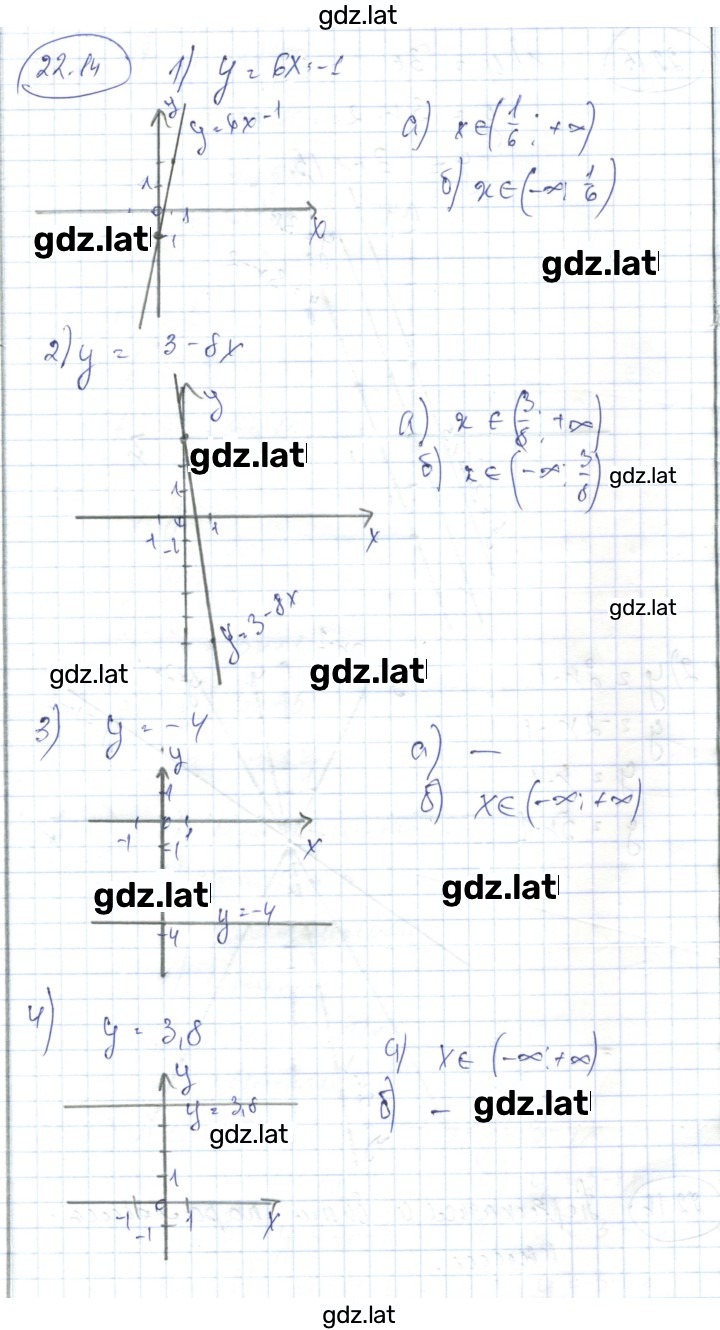 gdz.lat
22.14 1) y = 6x - 1
y
y = 6x - 1
а) x ∈ (1/6; +∞)
б) x ∈ (-∞; 1/6)
1
0
1
x
-1
gdz.lat
gdz.lat
2) y = 3 - 8x
y
а) x ∈ (3/8; +∞)
gdz.lat
б) x ∈ (-∞; 3/8)
gdz.lat
1
0
-1
1
x
-1
gdz.lat
y = 3 - 8x
gdz.lat
gdz.lat
3) y = -4
y
а) —
б) x ∈ (-∞; +∞)
1
0
-1
1
x
-1
gdz.lat
gdz.lat
y = -4
-4
4) y = 3,8
y
а) x ∈ (-∞; +∞)
y = 3,8
б) —
gdz.lat
gdz.lat
1
0
-1
1
x
-1
gdz.lat